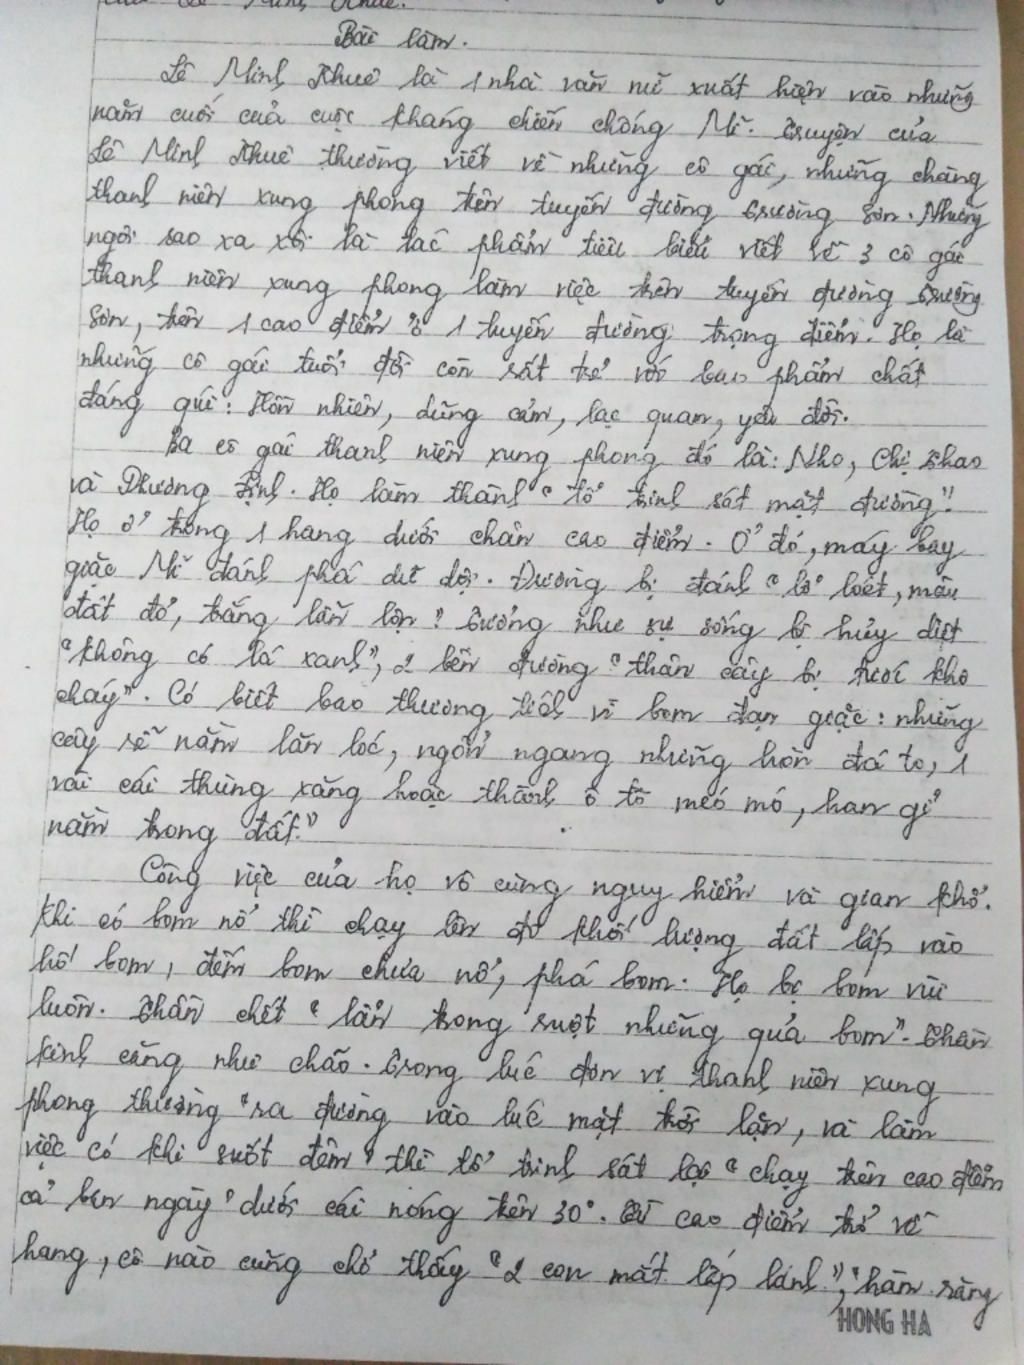 của Lê Minh Khuê.
Bài làm.
Lê Minh Khuê là 1 nhà văn nữ xuất hiện vào những
năm cuối của cuộc kháng chiến chống Mĩ. Truyện của
Lê Minh Khuê thường viết về những cô gái, những chàng
thanh niên xung phong trên tuyến đường Trường Sơn. Những
ngôi sao xa xôi là tác phẩm tiêu biểu viết về 3 cô gái
thanh niên xung phong làm việc trên tuyến đường Trường
Sơn, trên 1 cao điểm ở 1 tuyến đường trọng điểm. Họ là
những cô gái tuổi đời còn rất trẻ với bao phẩm chất
đáng quí: Hồn nhiên, dũng cảm, lạc quan, yêu đời.
Ba cô gái thanh niên xung phong đó là: Nho, Chị Thao
và Phương Định. Họ làm thành "tổ trinh sát mặt đường".
Họ ở trong 1 hang dưới chân cao điểm. Ở đó, máy bay
giặc Mĩ đánh phá dữ dội. Đường bị đánh "lở loét, màu
đất đỏ, trắng lẫn lộn". Tưởng như sự sống bị hủy diệt
"không có lá xanh", 2 bên đường "thân cây bị tước khô
cháy". Có biết bao thương tích vì bom đạn giặc: những
cây rễ nằm lăn lóc, ngổn ngang những hòn đá to, 1
vài cái thùng xăng hoặc thành ô tô méo mó, han gỉ
nằm trong đất."
Công việc của họ vô cùng nguy hiểm và gian khổ.
Khi có bom nổ thì chạy lên đo khối lượng đất lấp vào
hố bom, đếm bom chưa nổ, phá bom. Họ bị bom vùi
luôn. Thần chết "lẩn trong ruột những quả bom". Thần
kinh căng như chão. Trong lúc đơn vị thanh niên xung
phong thường "ra đường vào lúc mặt trời lặn, và làm
việc có khi suốt đêm" thì tổ trinh sát lại "chạy trên cao điểm
cả ban ngày" dưới cái nóng trên 30°. Từ cao điểm trở về
hang, cô nào cũng chỉ thấy "2 con mắt lấp lánh", "hàm răng
HONG HA